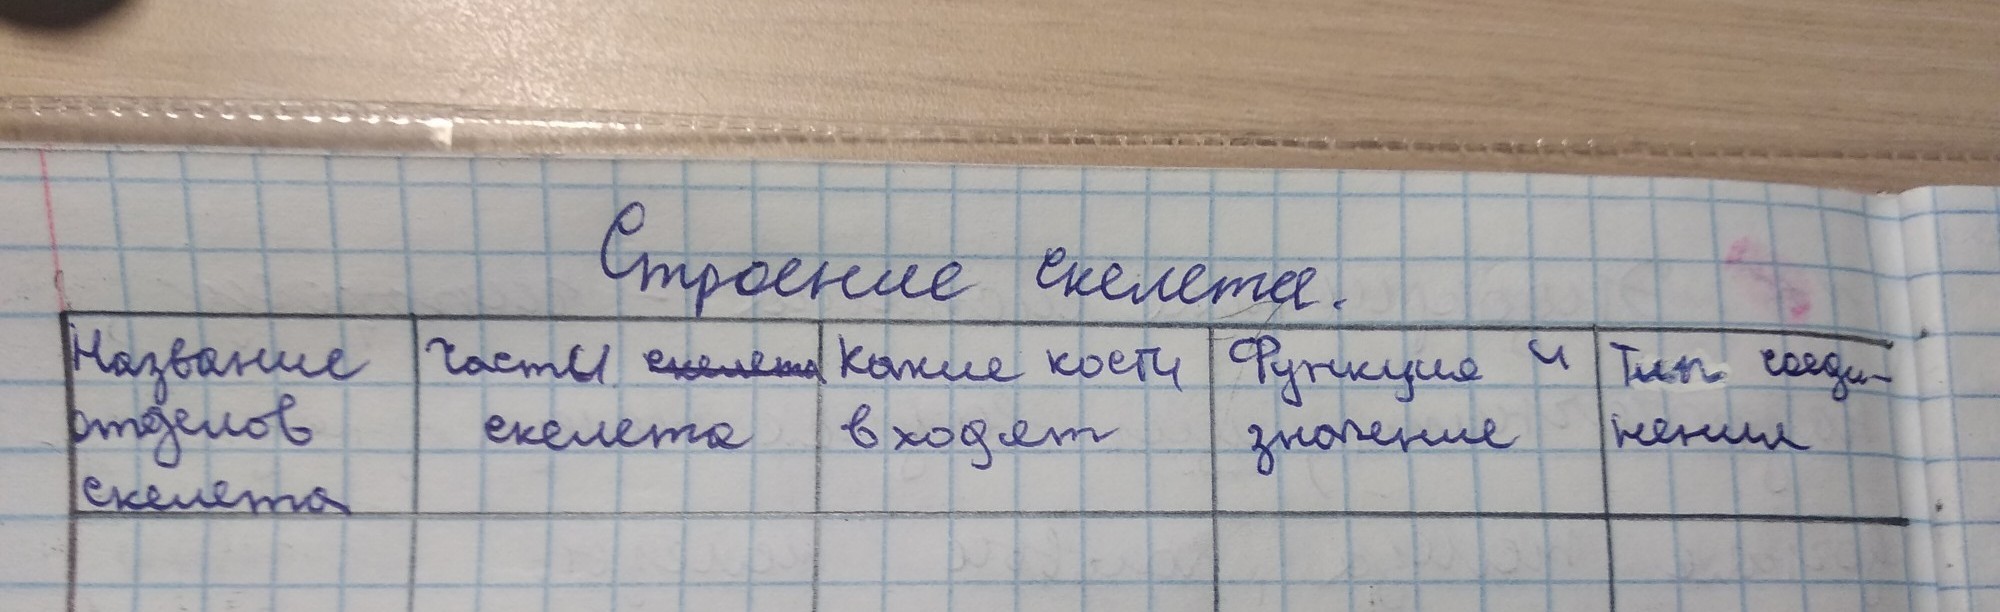 Строение скелета.
Название отделов скелета
Части скелета скелета
Какие кости входят
Функция и значение
Тип соеди-
нения